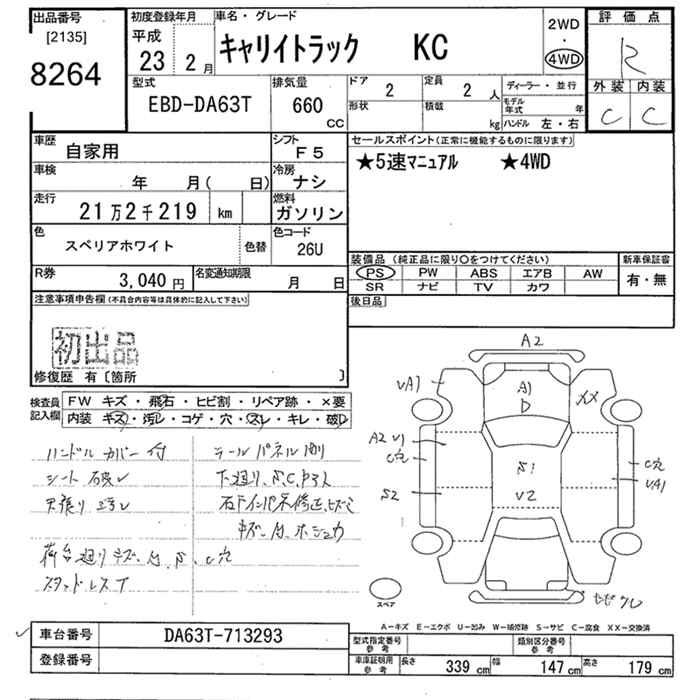 出品番号
[2135]
8264
初度登録年月
平成
23 2月
車名・グレード
キャリイトラック KC
2WD
・
4WD
評価点
R
外装 内装
C C
型式
EBD-DA63T
排気量
660
CC
ドア
2
定員
2 人
形状
積載
kg
ディーラー・並行
モデル年式 年
ハンドル 左・右
車歴
自家用
シフト
F5
車検
年 月( 日)
冷房
ナシ
走行
21万2千219 km
燃料
ガソリン
色
スペリアホワイト
色替
色コード
26U
R券
3,040円
名変通知期限
月 日
セールスポイント(正常に機能するものに限ります)
★5速マニュアル ★4WD
装備品(純正品に限り○をつけてください)
PS PW ABS エアB AW
SR ナビ TV カワ
新車保証書
有・無
後日品
注意事項申告欄(不具合内容等は具体的に記入して下さい)
初出品
修復歴 有〔箇所 〕
検査員記入欄
FW キズ・飛石・ヒビ割・リペア跡・×要
内装 キズ・汚レ・コゲ・穴・スレ・キレ・破レ
ハンドルカバー付
シート破レ
天張り汚レ
荷台廻りキズ、凹、S、C穴
スタッドレスT
テールパネル
下廻り、S、C
キズ、凹
A2
VA1
A1
XX
A2 V1
C穴
S2
S1
V2
C穴
VA1
スペア
A-キズ E-エクボ U-凹み W-補修跡 S-サビ C-腐食 XX-交換済
車台番号
DA63T-713293
登録番号
型式指定番号
参考
類別区分番号
参考
車庫証明用
参考
長さ 339 cm
幅 147 cm
高さ 179 cm